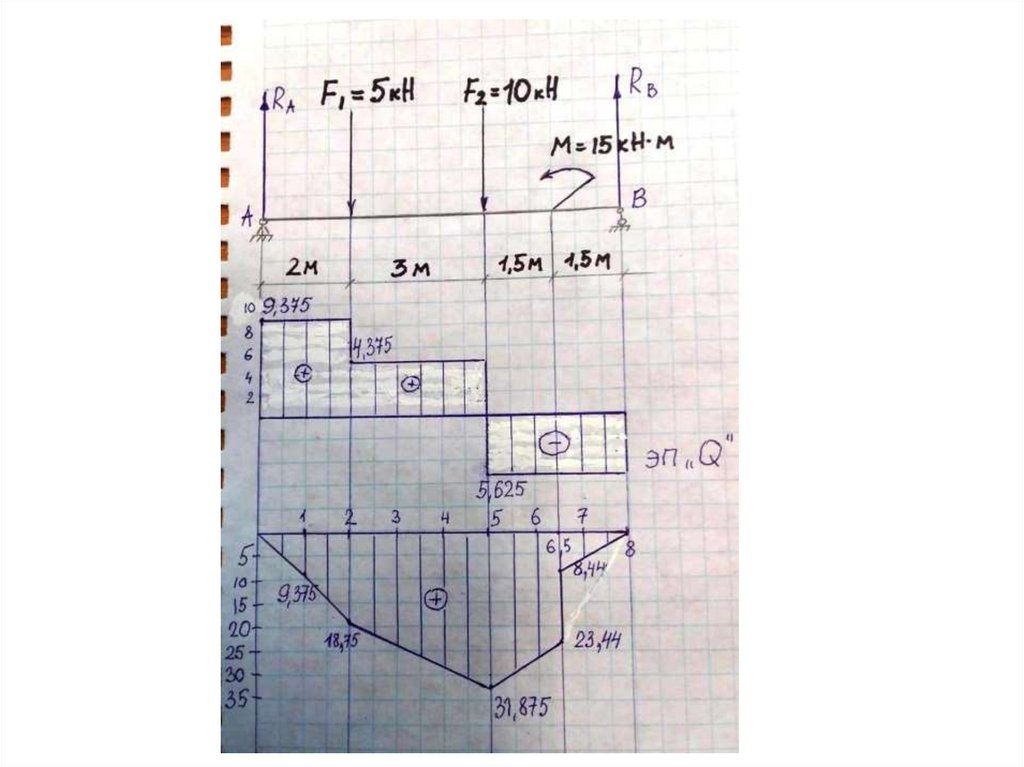 R_A F₁=5кН F₂=10кН R_B
M=15кН·м
A B
2м 3м 1,5м 1,5м
10 9,375
8
6 4,375
4 ⊕ ⊕
2
⊖ ЭП „Q"
5,625
1 2 3 4 5 6 7
6,5 8
5
8,44
10
9,375
15 ⊕
20
18,75 23,44
25
30
35
31,875